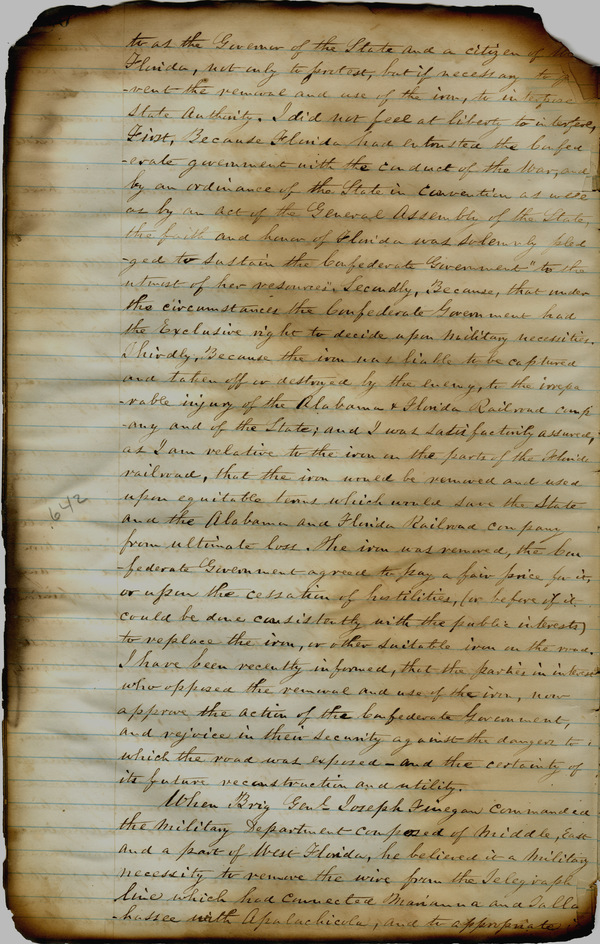 to as the Governor of the State and a citizen of
Florida, not only to protest, but if necessary to
-vent the removal and use of the iron, to interpose
State Authority. I did not feel at liberty to interfere,
First, Because Florida had entrusted the Confed
-erate government with the conduct of the War, and
by an ordinance of the State in Convention as well
as by an act of the General Assembly of the State,
the faith and honor of Florida was solemnly pled
-ged to sustain the Confederate Government "to the
utmost of her resources". Secondly, Because, that under
the circumstances the Confederate Government had
the Exclusive right to decide upon Military necessities.
Thirdly, Because the iron was liable to be captured
and taken off or destroyed by the enemy, to the irrepa
-rable injury of the Alabama & Florida Railroad comp
-any and of the State; and I was satisfactorily assured,
as I am relative to the iron on the parts of the Florida
railroad, that the iron would be removed and used
upon equitable terms which would save the State
and the Alabama and Florida Railroad company
from ultimate loss. The iron was removed, the Con
-federate Government agreed to pay a fair price for it,
or upon the cessation of hostilities, (or before if it
could be done consistently with the public interests)
to replace the iron, or other suitable iron on the road.
I have been recently informed, that the parties in interest
who opposed the removal and use of the iron, now
approve the action of the Confederate Government,
and rejoice in their security against the dangers to
which the road was exposed - and the certainty of
its future reconstruction and utility.
When Brig Genl Joseph Finegan commanded
the Military Department composed of Middle, East
and a part of West Florida, he believed it a Military
necessity to remove the wire from the Telegraph
line which had connected Marianna and Talla
-hassee with Apalachicola, and to appropriate
642